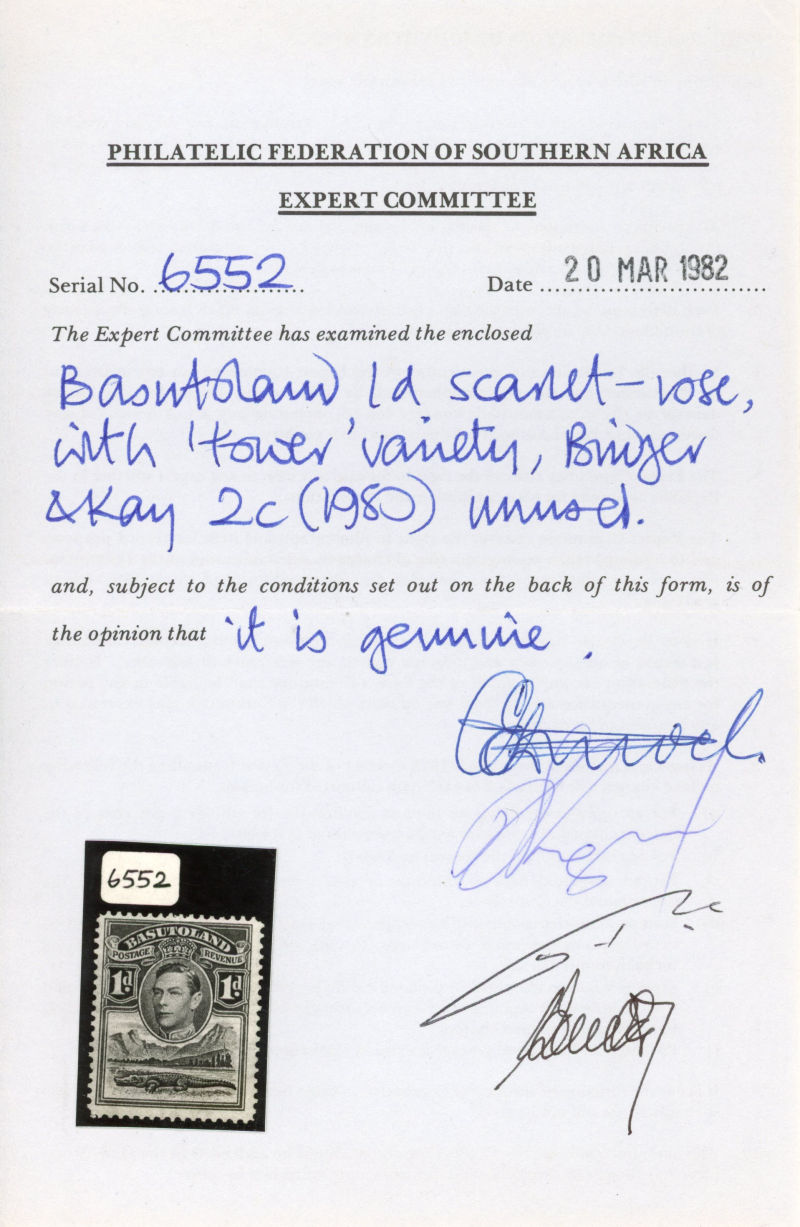 PHILATELIC FEDERATION OF SOUTHERN AFRICA
EXPERT COMMITTEE
Serial No. 6552
Date 20 MAR 1982
The Expert Committee has examined the enclosed
Basutoland 1d scarlet-rose,
with 'tower' variety, Bridger
& Kay 2c (1980) unused.
and, subject to the conditions set out on the back of this form, is of
the opinion that it is genuine.
6552
BASUTOLAND
POSTAGE REVENUE
1D 1D